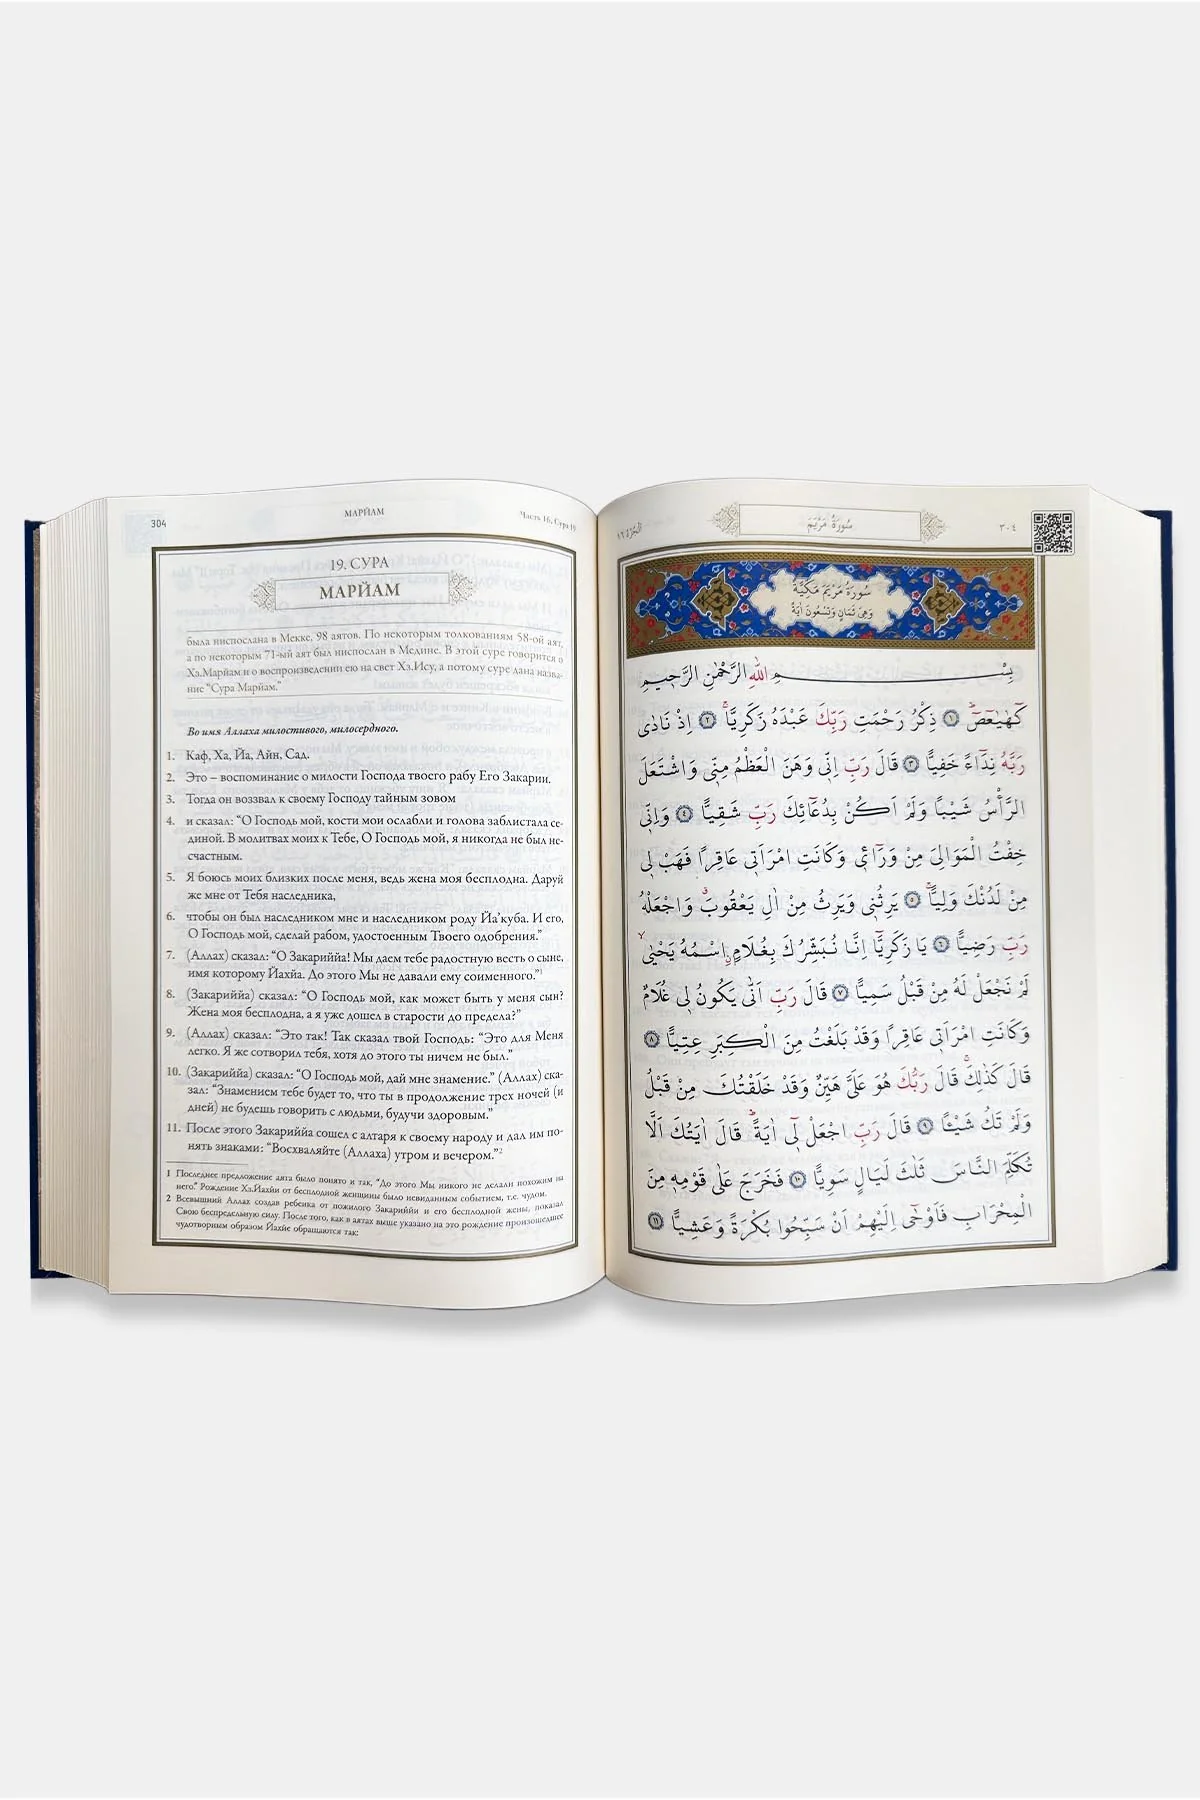 304
МАРЙАМ
Часть 16, Сура 19
19. СУРА
МАРЙАМ
была ниспослана в Мекке, 98 аятов. По некоторым толкованиям 58-ой аят,
а по некоторым 71-ый аят был ниспослан в Медине. В этой суре говорится о
Хз.Марйам и о воспроизведении ею на свет Хз.Ису, а потому суре дана назва-
ние “Сура Марйам.”
Во имя Аллаха милостивого, милосердного.
1. Каф, Ха, Йа, Айн, Сад.
2. Это – воспоминание о милости Господа твоего рабу Его Закарии.
3. Тогда он воззвал к своему Господу тайным зовом
4. и сказал: “О Господь мой, кости мои ослабли и голова заблистала се-
диной. В молитвах моих к Тебе, О Господь мой, я никогда не был не-
счастным.
5. Я боюсь моих близких после меня, ведь жена моя бесплодна. Даруй
же мне от Тебя наследника,
6. чтобы он был наследником мне и наследником роду Йа’куба. И его,
О Господь мой, сделай рабом, удостоенным Твоего одобрения.”
7. (Аллах) сказал: “О Закариййа! Мы даем тебе радостную весть о сыне,
имя которому Йахйа. До этого Мы не давали ему соименного.”1
8. (Закариййа) сказал: “О Господь мой, как может быть у меня сын?
Жена моя бесплодна, а я уже дошел в старости до предела?”
9. (Аллах) сказал: “Это так! Так сказал твой Господь: “Это для Меня
легко. Я же сотворил тебя, хотя до этого ты ничем не был.”
10. (Закариййа) сказал: “О Господь мой, дай мне знамение.” (Аллах) ска-
зал: “Знамением тебе будет то, что ты в продолжение трех ночей (и
дней) не будешь говорить с людьми, будучи здоровым.”
11. После этого Закариййа сошел с алтаря к своему народу и дал им по-
нять знаками: “Восхваляйте (Аллаха) утром и вечером.”2
1 Последнее предложение аята было понято и так, “До этого Мы никого не делали похожим на
него.” Рождение Хз.Йахйи от бесплодной женщины было невиданным событием, т.е. чудом.
2 Всевышний Аллах создав ребенка от пожилого Закариййи и его бесплодной жены, показал
Свою беспредельную силу. После того, как в аятах выше указано на это рождение произошедшее
чудотворным образом Йахйе обращаются так:
٣٠٤
سُورَةُ مَرْيَمَ
اَلْجُزْءُ ١٦
سُورَةُ مَرْيَمَ مَكِّيَّةٌ
وَهِيَ ثَمَانٍ وَتِسْعُونَ اٰيَةً
بِسْمِ اللّٰهِ الرَّحْمٰنِ الرَّحِيمِ
كٓهٰيٰعٓصٓ ﴿١﴾ ذِكْرُ رَحْمَتِ رَبِّكَ عَبْدَهُ زَكَرِيَّاۚ ﴿٢﴾ اِذْ نَادٰى
رَبَّهُ نِدَٓاءً خَفِيًّا ﴿٣﴾ قَالَ رَبِّ اِنّٖي وَهَنَ الْعَظْمُ مِنّٖي وَاشْتَعَلَ
الرَّأْسُ شَيْبًا وَلَمْ اَكُنْ بِدُعَٓائِكَ رَبِّ شَقِيًّا ﴿٤﴾ وَاِنّٖي
خِفْتُ الْمَوَالِيَ مِنْ وَرَٓائٖي وَكَانَتِ امْرَاَتٖي عَاقِرًا فَهَبْ لٖي
مِنْ لَدُنْكَ وَلِيًّاۙ ﴿٥﴾ يَرِثُنٖي وَيَرِثُ مِنْ اٰلِ يَعْقُوبَۗ وَاجْعَلْهُ
رَبِّ رَضِيًّا ﴿٦﴾ يَا زَكَرِيَّٓا اِنَّا نُبَشِّرُكَ بِغُلَامٍۨ اسْمُهُ يَحْيٰىۙ
لَمْ نَجْعَلْ لَهُ مِنْ قَبْلُ سَمِيًّا ﴿٧﴾ قَالَ رَبِّ اَنّٰى يَكُونُ لٖي غُلَامٌ
وَكَانَتِ امْرَاَتٖي عَاقِرًا وَقَدْ بَلَغْتُ مِنَ الْكِبَرِ عِتِيًّا ﴿٨﴾
قَالَ كَذٰلِكَۚ قَالَ رَبُّكَ هُوَ عَلَيَّ هَيِّنٌ وَقَدْ خَلَقْتُكَ مِنْ قَبْلُ
وَلَمْ تَكُ شَيْئًا ﴿٩﴾ قَالَ رَبِّ اجْعَلْ لٖٓي اٰيَةًۜ قَالَ اٰيَتُكَ اَلَّا
تُكَلِّمَ النَّاسَ ثَلٰثَ لَيَالٍ سَوِيًّا ﴿١٠﴾ فَخَرَجَ عَلٰى قَوْمِهٖ مِنَ
الْمِحْرَابِ فَاَوْحٰٓى اِلَيْهِمْ اَنْ سَبِّحُوا بُكْرَةً وَعَشِيًّا ﴿١١﴾